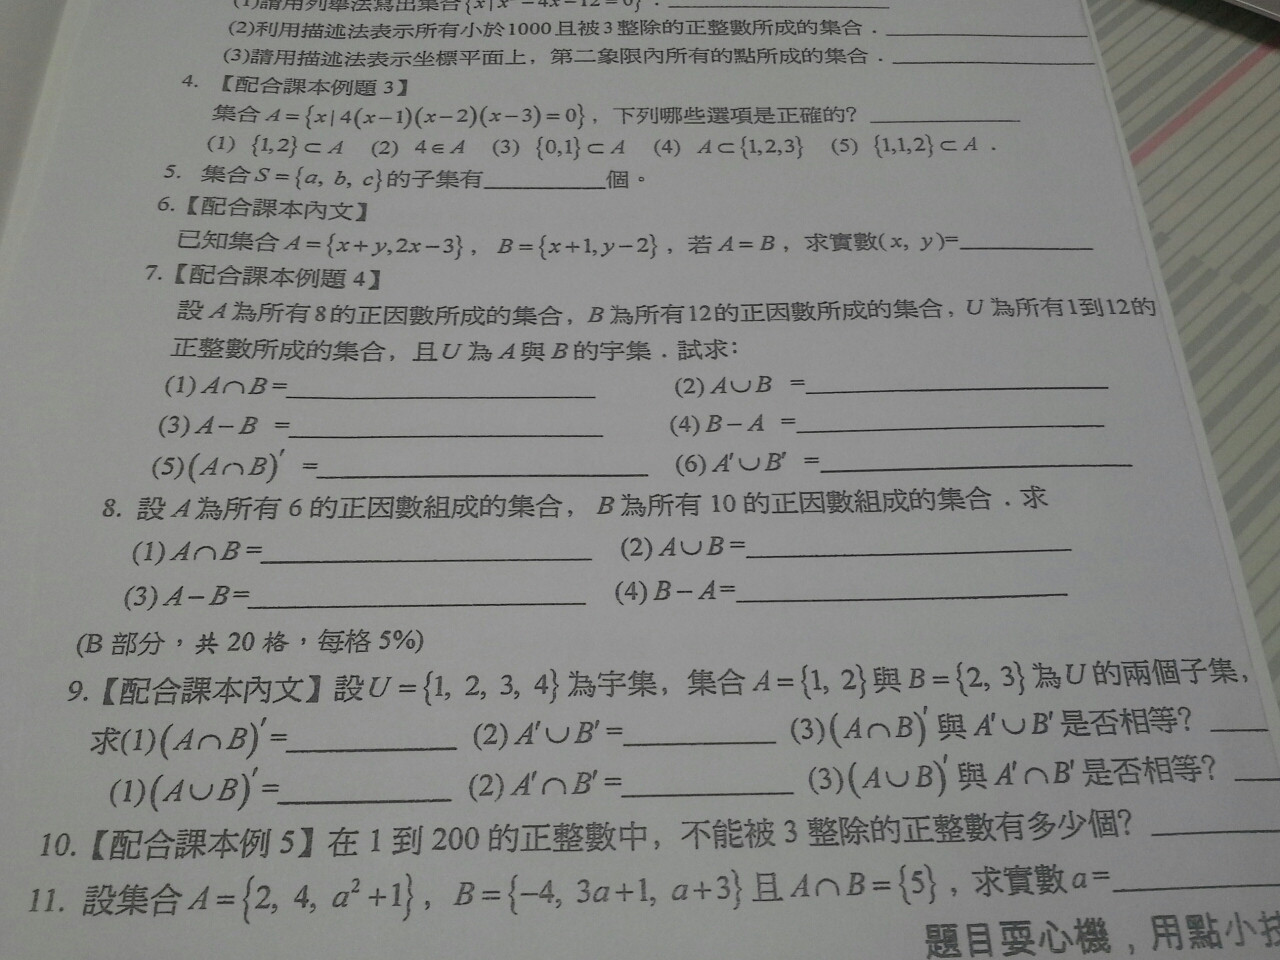 (1)請用列舉法寫出集合{x|x² −4x−12=0}．
(2)利用描述法表示所有小於1000且被3整除的正整數所成的集合．
(3)請用描述法表示坐標平面上，第二象限內所有的點所成的集合．
4.【配合課本例題3】
集合A={x|4(x−1)(x−2)(x−3)=0}，下列哪些選項是正確的？
(1) {1,2}⊂A (2) 4∈A (3) {0,1}⊂A (4) A⊂{1,2,3} (5) {1,1,2}⊂A．
5. 集合S={a, b, c}的子集有______個。
6.【配合課本內文】
已知集合A={x+y,2x−3}，B={x+1,y−2}，若A=B，求實數(x, y)=______
7.【配合課本例題4】
設A為所有8的正因數所成的集合，B為所有12的正因數所成的集合，U為所有1到12的
正整數所成的集合，且U為A與B的宇集．試求：
(1)A∩B=______ (2)A∪B =______
(3)A−B =______ (4)B−A =______
(5)(A∩B)′ =______ (6)A′∪B′ =______
8. 設A為所有6的正因數組成的集合，B為所有10的正因數組成的集合．求
(1)A∩B=______ (2)A∪B=______
(3)A−B=______ (4)B−A=______
(B 部分，共 20 格，每格 5%)
9.【配合課本內文】設U={1, 2, 3, 4}為宇集，集合A={1, 2}與B={2, 3}為U的兩個子集，
求(1)(A∩B)′=______ (2)A′∪B′=______ (3)(A∩B)′與A′∪B′是否相等？______
(1)(A∪B)′=______ (2)A′∩B′=______ (3)(A∪B)′與A′∩B′是否相等？______
10.【配合課本例5】在1到200的正整數中，不能被3整除的正整數有多少個？______
11. 設集合A={2, 4, a²+1}，B={−4, 3a+1, a+3}且A∩B={5}，求實數a=______
題目耍心機，用點小技